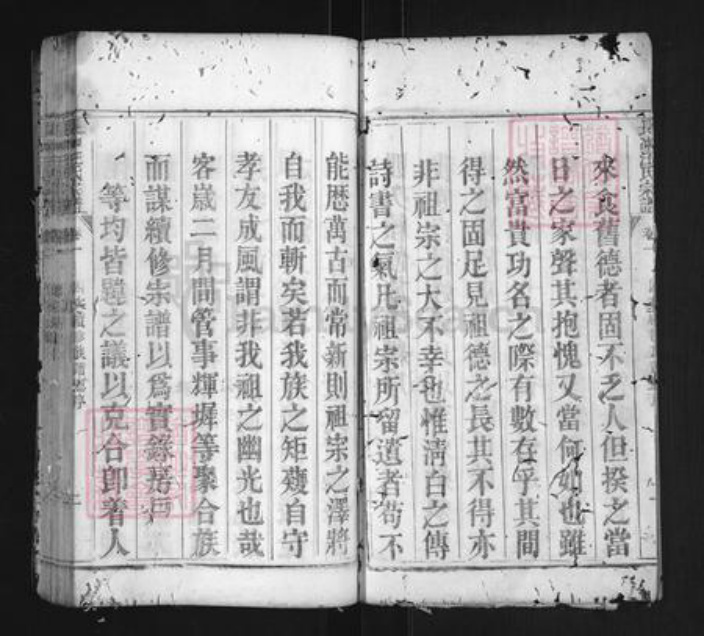 來食舊德者固不乏人但揆之當
日之家聲其抱愧又當何如也雖
然富貴功名之際有數存乎其間
得之固足見祖德之長其不得亦
非祖宗之大不幸也惟清白之傳
詩書之氣凡祖宗所留遺者苟不
能歷萬古而常新則祖宗之澤將
自我而斬矣若我族之矩矱自守
孝友成風謂非我祖之幽光也哉
客歲二月間管事輝墀等聚合族
而謀續修宗譜以爲實錄房戶
等均皆韙之議以克合卽着人